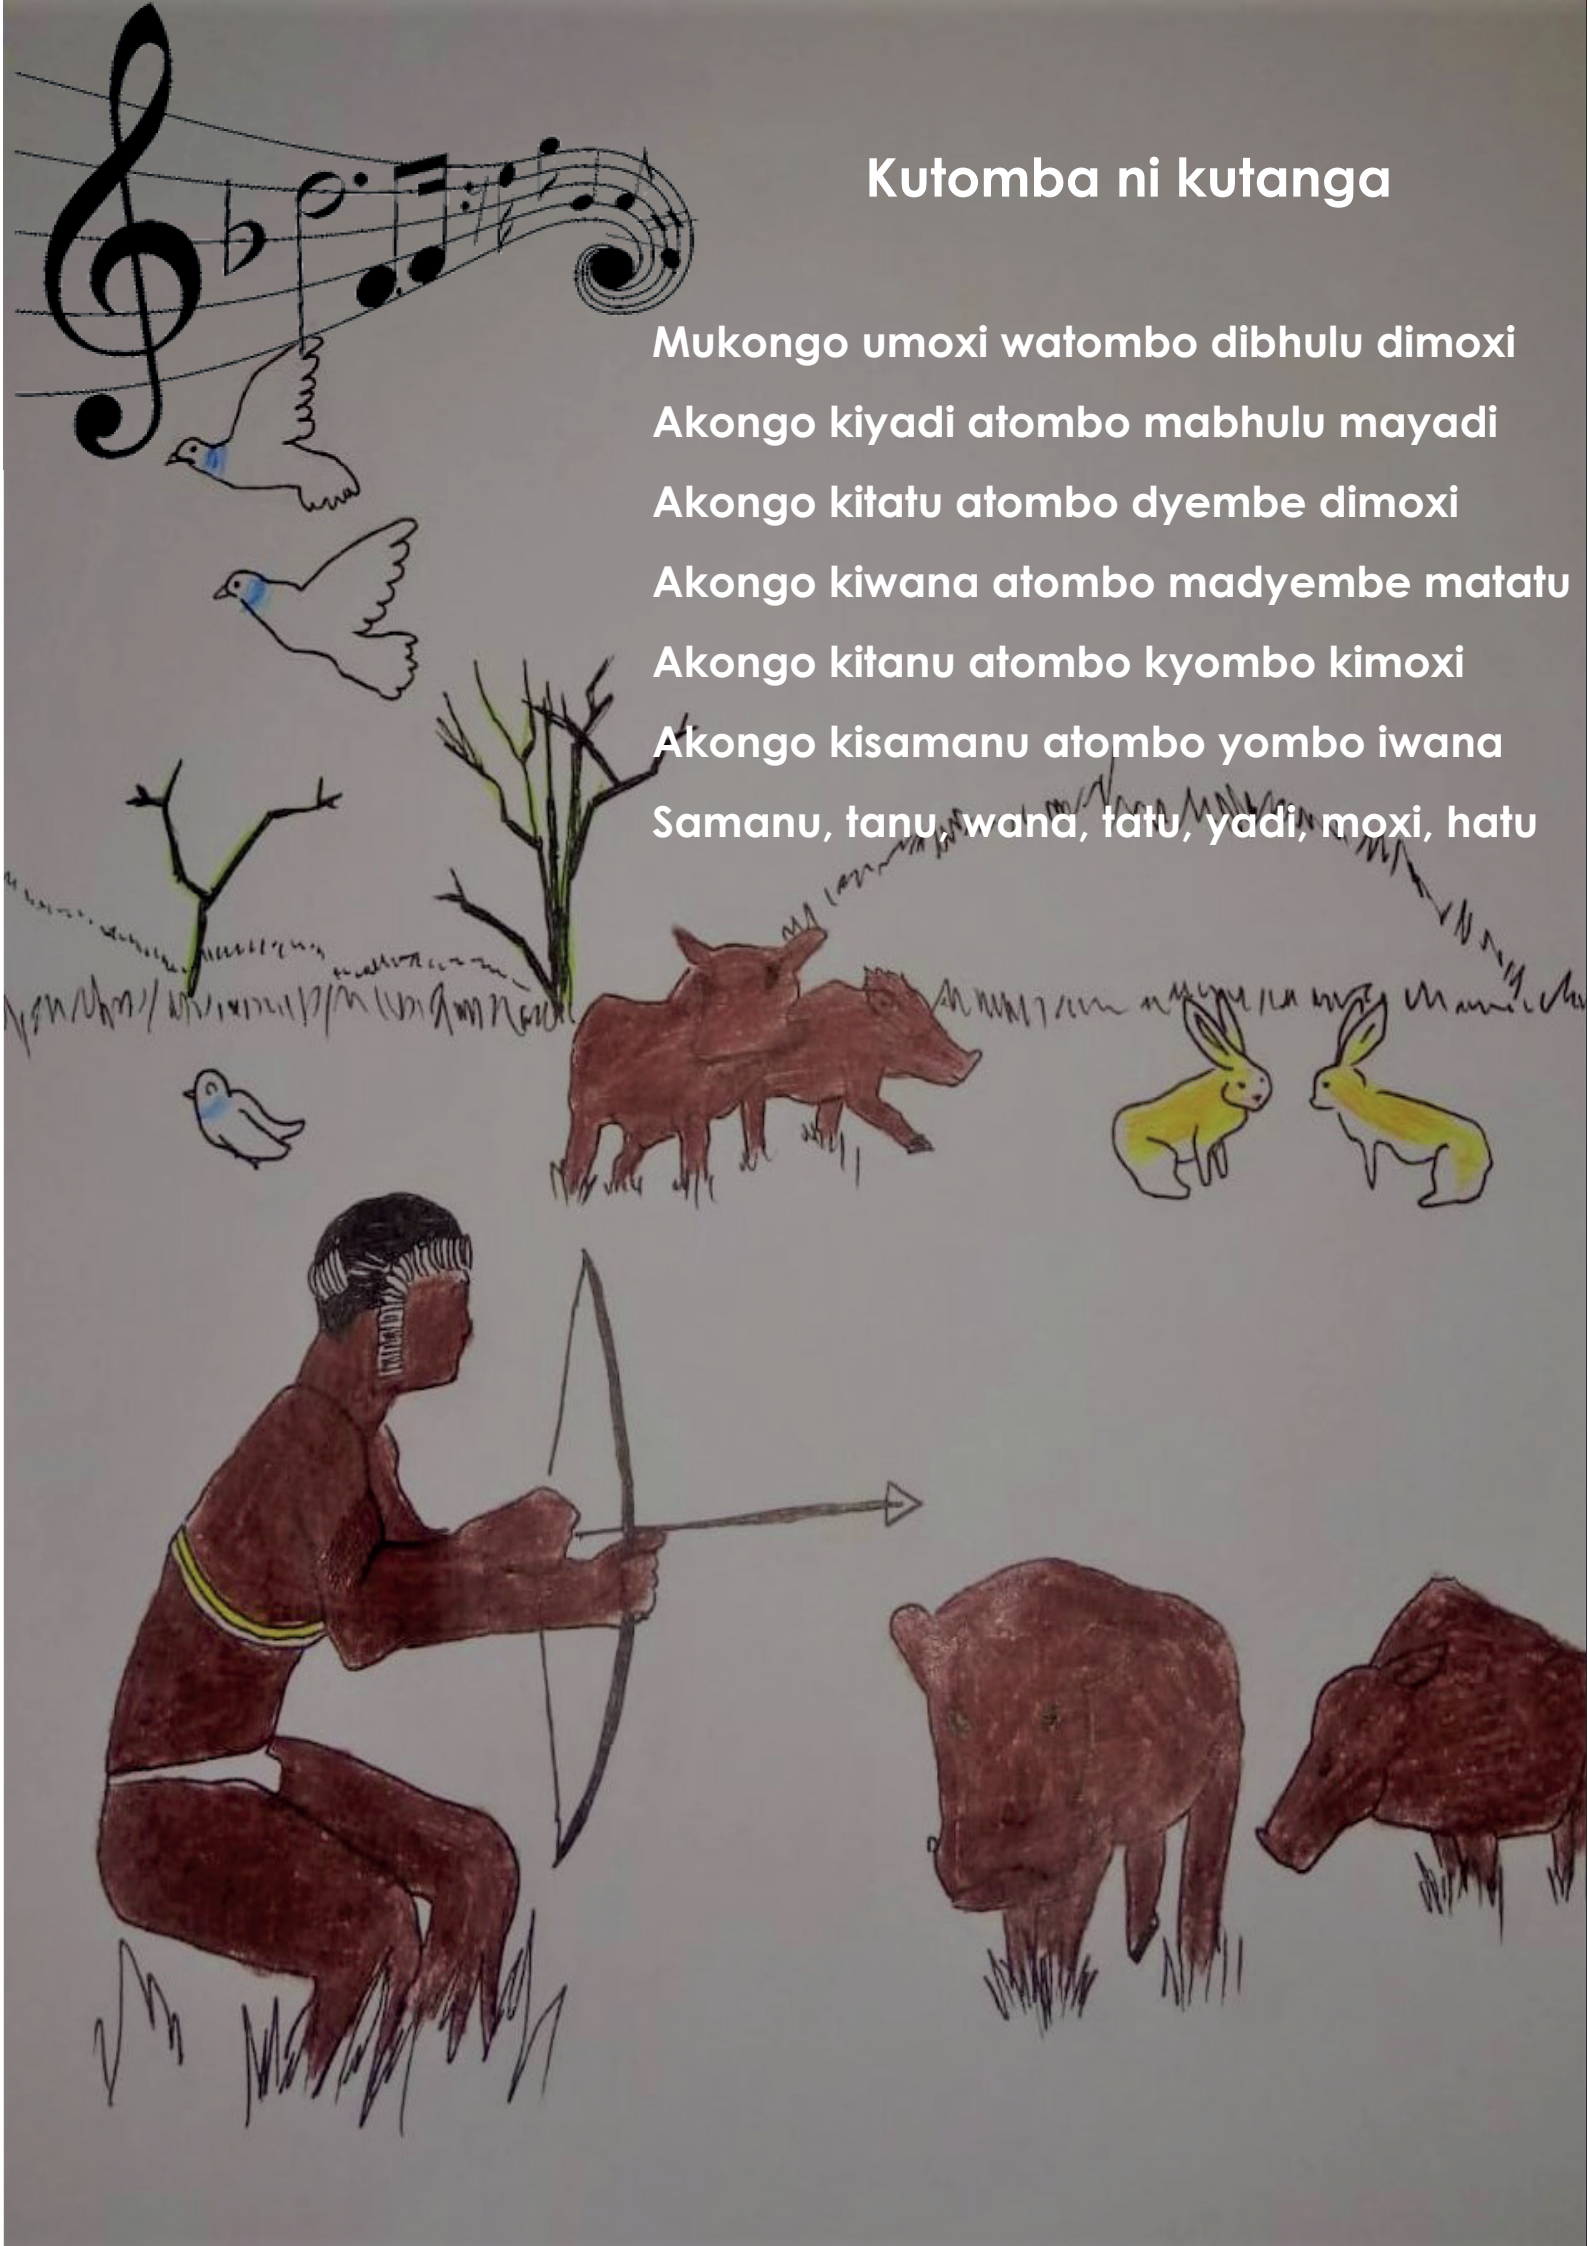 Kutomba ni kutanga
Mukongo umoxi watombo dibhulu dimoxi
Akongo kiyadi atombo mabhulu mayadi
Akongo kitatu atombo dyembe dimoxi
Akongo kiwana atombo madyembe matatu
Akongo kitanu atombo kyombo kimoxi
Akongo kisamanu atombo yombo iwana
Samanu, tanu, wana, tatu, yadi, moxi, hatu